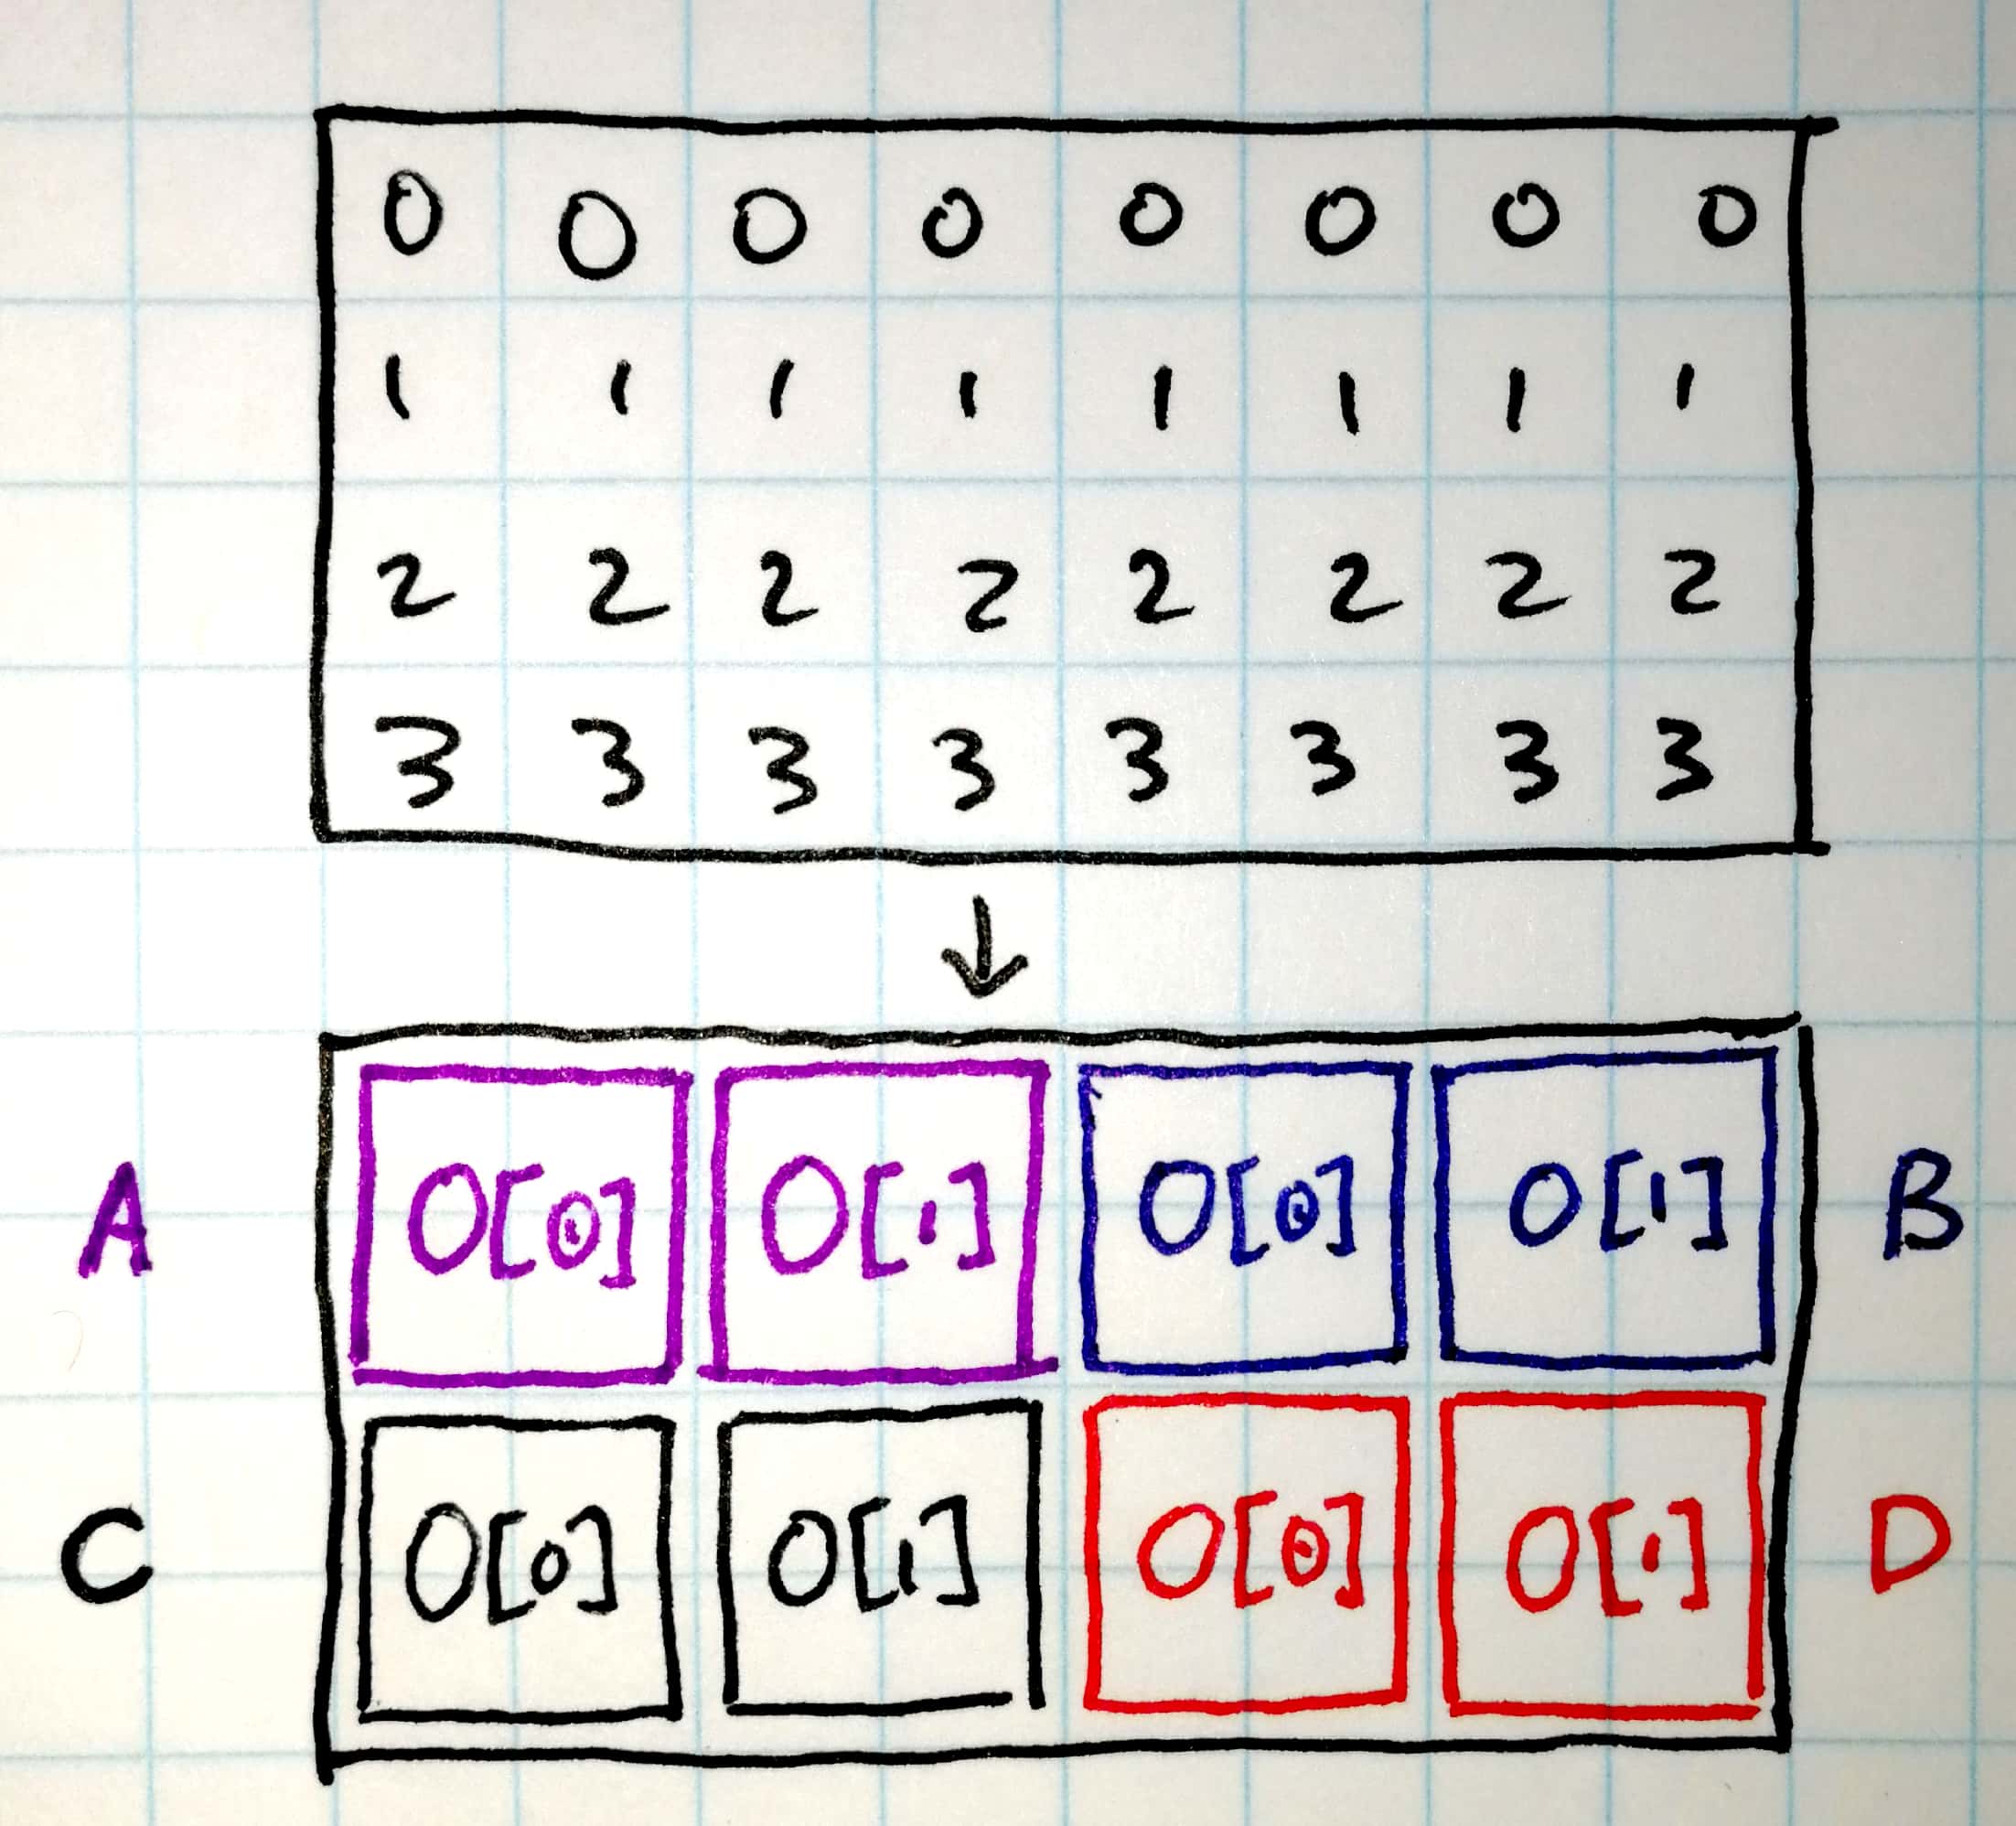 0 0 0 0 0 0 0 0
1 1 1 1 1 1 1 1
2 2 2 2 2 2 2 2
3 3 3 3 3 3 3 3
↓
A O[0] O[1] O[0] O[1] B
C O[0] O[1] O[0] O[1] D